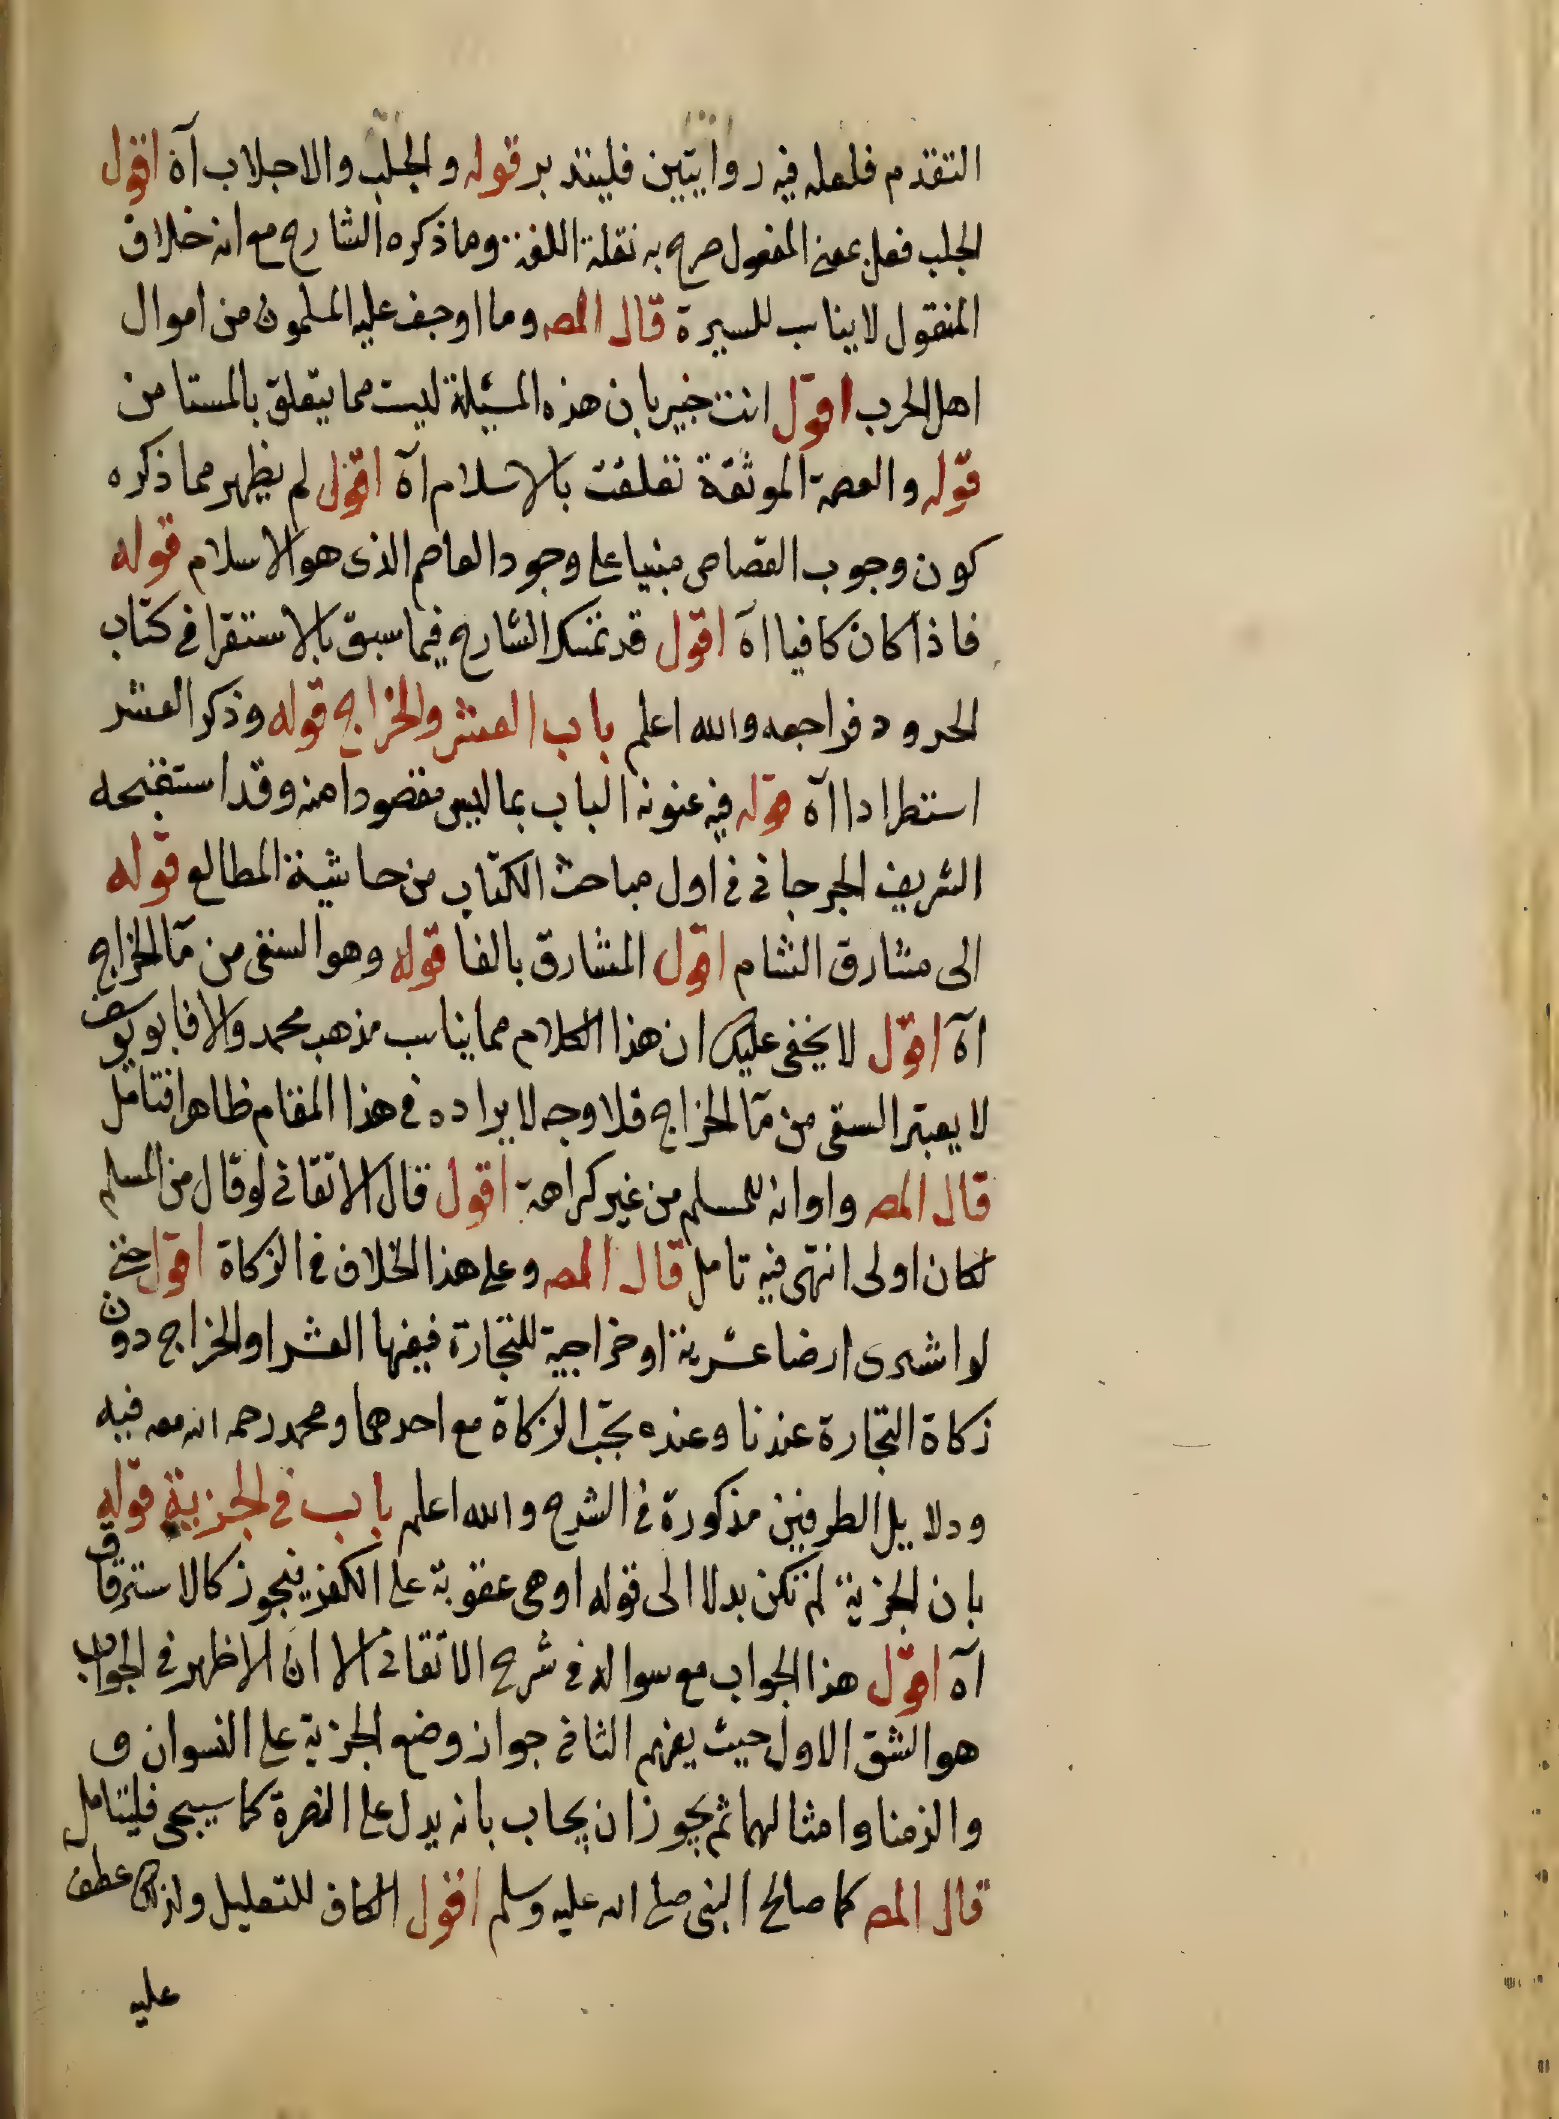 التقدم فلعله فيه روايتين فليتدبر قوله والجلب والاجلاب آه اقول
الجلب فعل بمعنى المفعول صرح به نقلة اللغة وما ذكره الشارح مع انه خلاف
المنقول لا يناسب للسيرة قال المصه وما اوجف عليه المسلمون من اموال
اهل الحرب اقول انت خبير بان هذه المسئلة ليست مما يتعلق بالمستامن
قوله والعصمة الموثقة تعلقت بالاسلام آه اقول لم يظهر مما ذكره
كون وجوب القصاص مبنيا على وجود العاصم الذى هو الاسلام قوله
فاذا كان كافيا آه اقول قد تمسك الشارح فيما سبق بالاستقرا في كتاب
الحدود فراجعه والله اعلم باب العشر والخراج قوله وذكر العشر
استطرادا آه قوله فيه عنونه الباب بما ليس مقصودا منه وقد استقبحه
الشريف الجرجاني في اول مباحث الكتاب من حاشية المطالع قوله
الى مشارق الشام اقول المشارق بالفا قوله وهو السقى من مآ الخراج
آه اقول لا يخفى عليك ان هذا الكلام مما يناسب مذهب محمد والا فابو يوسف
لا يعتبر السقى من مآ الخراج فلا وجه لايراده في هذا المقام ظاهرا فتامل
قال المصه واوانه للمسلم من غير كراهة اقول قال الاتقاني لو قال من المسلم
لكان اولى انتهى فيه تامل قال المصه وعلى هذا الخلاف في الزكاة اقول حتى
لو اشترى ارضا عشرية او خراجية للتجارة ففيها العشر او الخراج دون
زكاة التجارة عندنا وعنده تجب الزكاة مع احدهما ومحمد رحمه الله معه فيه
ودلايل الطرفين مذكورة في الشرح والله اعلم باب في الجزية قوله
بان الجزية لم تكن بدلا الى قوله او هى عقوبة على الكفر فيجوز كالاسترقاق
آه اقول هذا الجواب مع سواله في شرح الاتقاني الا ان الاظهر في الجواب
هو الشق الاول حيث يفهم الثاني جواز وضع الجزية على النسوان و
والزمنا وامثالهما ثم يجوز ان يجاب بانه يدل على النصرة كما سيجى فليتامل
قال المصه كما صالح النبى صلى الله عليه وسلم اقول الكاف للتعليل ولذلك عطف
عليه